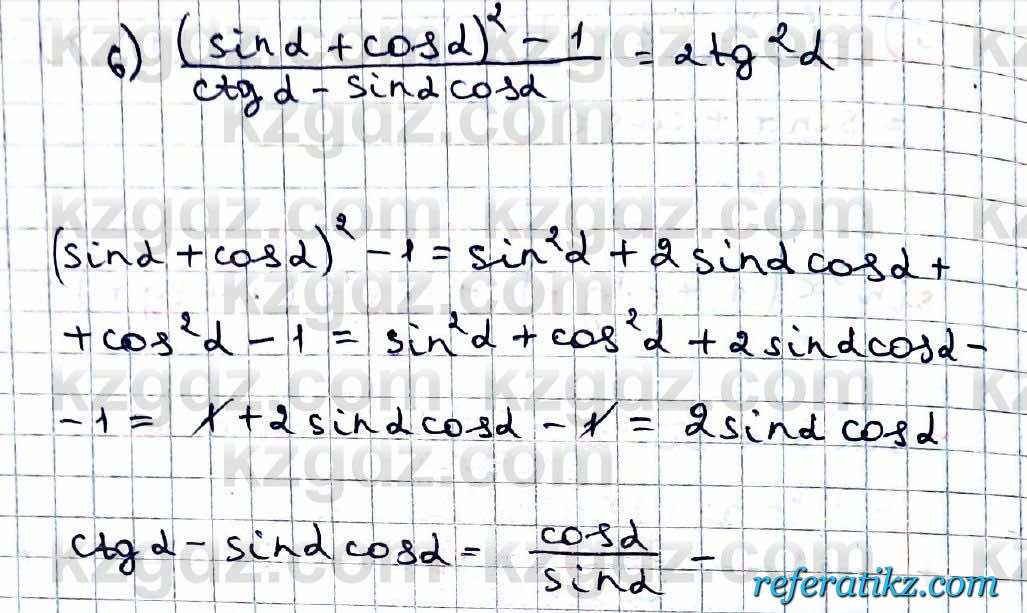 6) (sinα + cosα)² - 1 / ctgα - sinα cosα = 2tg²α
(sinα + cosα)² - 1 = sin²α + 2sinα cosα +
+ cos²α - 1 = sin²α + cos²α + 2sinα cosα -
- 1 = 1 + 2sinα cosα - 1 = 2sinα cosα
ctgα - sinα cosα = cosα / sinα -
kzgdz.com
referatikz.com